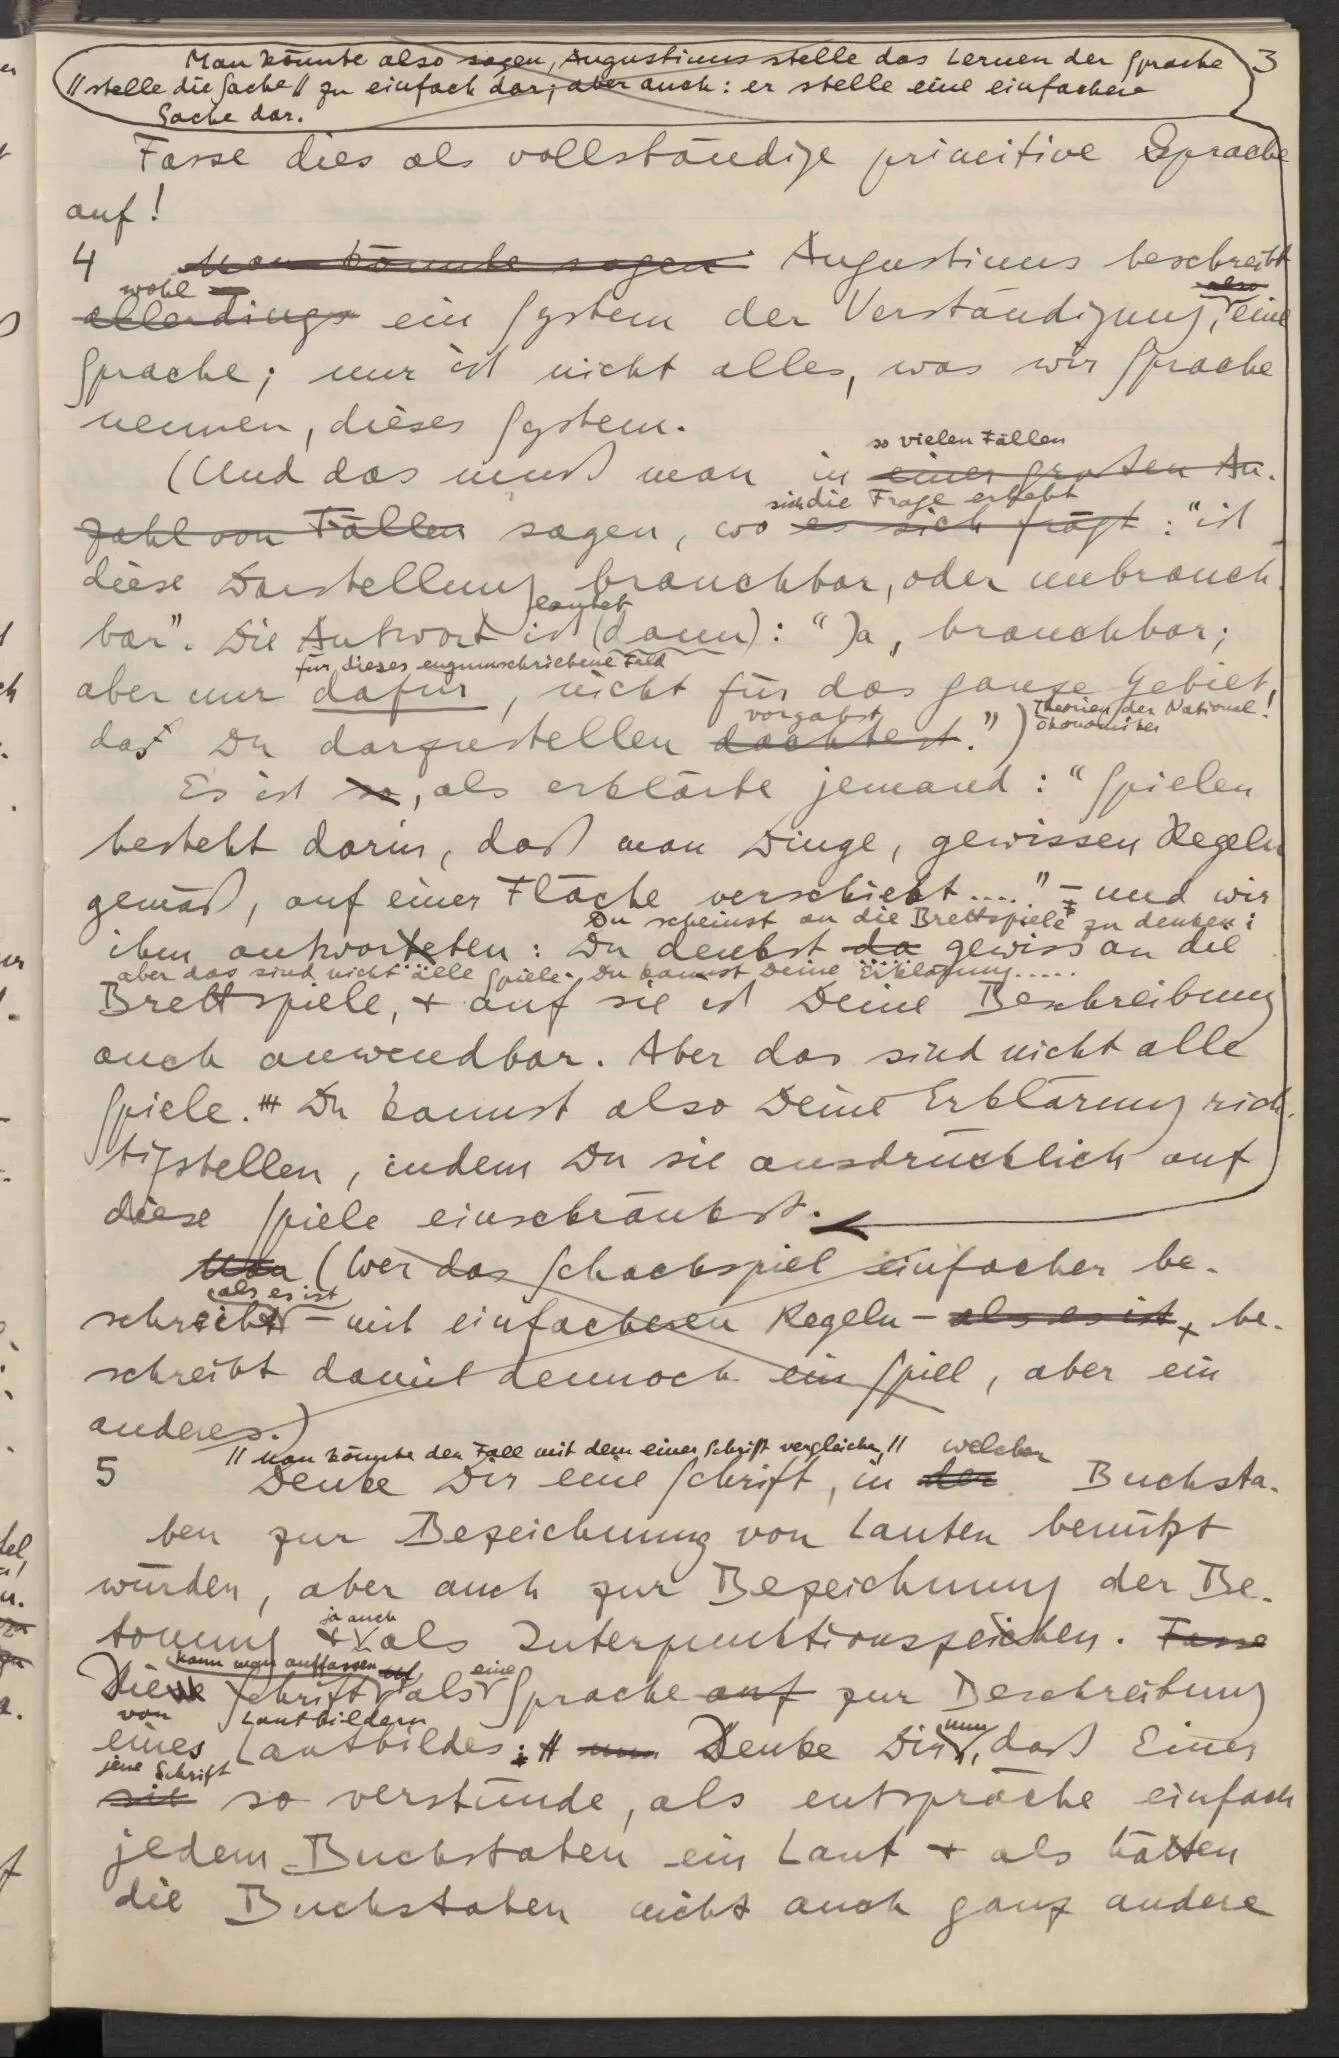 Man könnte also sagen, Augustinus stelle das Lernen der Sprache 3
// stelle die Sache // zu einfach dar; aber auch: er stelle eine einfachere
Sache dar.
Fasse dies als vollständige primitive Sprache
auf!
4 Man könnte sagen: Augustinus beschreibt
wohl also
allerdings ein System der Verständigung, eine
Sprache; nur ist nicht alles, was wir Sprache
nennen, dieses System.
so vielen Fällen
(Und das muß man in einer großen An-
sich die Frage erhebt
zahl von Fällen sagen, wo es sich frägt: "ist
diese Darstellung brauchbar, oder unbrauch-
lautet
bar". Die Antwort ist (dann): "Ja, brauchbar;
für dieses engumschriebene Feld
aber nur dafür, nicht für das ganze Gebiet,
vorgabst Theorien der National-
das Du darzustellen dachtest.") ökonomiker
Es ist so, als erklärte jemand: "Spielen
besteht darin, daß man Dinge, gewissen Regeln
gemäß, auf einer Fläche verschiebt...." – und wir
Du scheinst an die Brettspiele zu denken;
ihm antworteten: Du denkst da gewiss an die
aber das sind nicht alle Spiele. Du kannst Deine Erklärung.....
Brettspiele, + auf sie ist Deine Beschreibung
auch anwendbar. Aber das sind nicht alle
Spiele. Du kannst also Deine Erklärung rich-
tigstellen, indem Du sie ausdrücklich auf
diese Spiele einschränkst.
Man (Wer das Schachspiel einfacher be-
als es ist
schreibt – mit einfacheren Regeln – als es ist, be-
schreibt damit dennoch ein Spiel, aber ein
anderes.)
// Man könnte den Fall mit dem einer Schrift vergleichen, // welcher
5 Denke Dir eine Schrift, in der Buchsta-
ben zur Bezeichnung von Lauten benützt
würden, aber auch zur Bezeichnung der Be-
ja auch
tonung + als Interpunktionszeichen. Fasse
kann man auffassen auf eine
Diese Schrift als Sprache auf zur Beschreibung
von Lautbildern
eines Lautbildes: nun Denke Dir nun, daß Einer
jene Schrift
sie so verstünde, als entspräche einfach
jedem Buchstaben ein Laut + als hätten
die Buchstaben nicht auch ganz andere